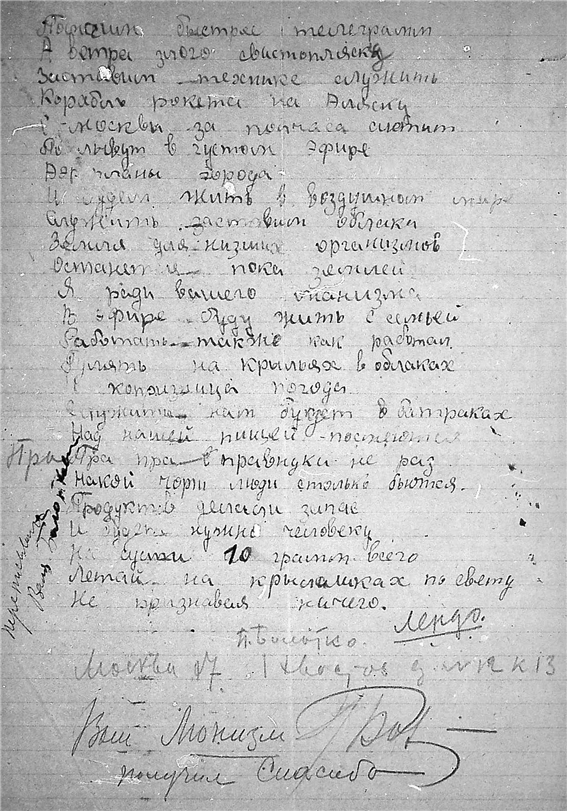 быстрее телеграмм
А ветра злого свистопляску
Заставим технике служить
Корабль ракета на Аляску
С москвы за полчаса слетит
Поплывут в густом эфире
города
И будем жить в воздушном мире
Служить заставим облака
Земля для низших организмов
Останется пока землей
Я ради вашего
В эфире буду жить с семьей
Работать также как работал
Гулять на крыльях в облаках
погоды
Служить нам будет в батраках
Над нашей пищей посмеются
Пра Пра пра в правнуки не раз
Накой чорт люди столько бьются.
Продуктов делали запас
И будет нужно человеку
На сутки 10 грамм всего
Летай на крылышках по свету
Не признавая ничего.
Лендо.
П. Болотко.
Москва 17.
Ваш Монизм
получил Спасибо